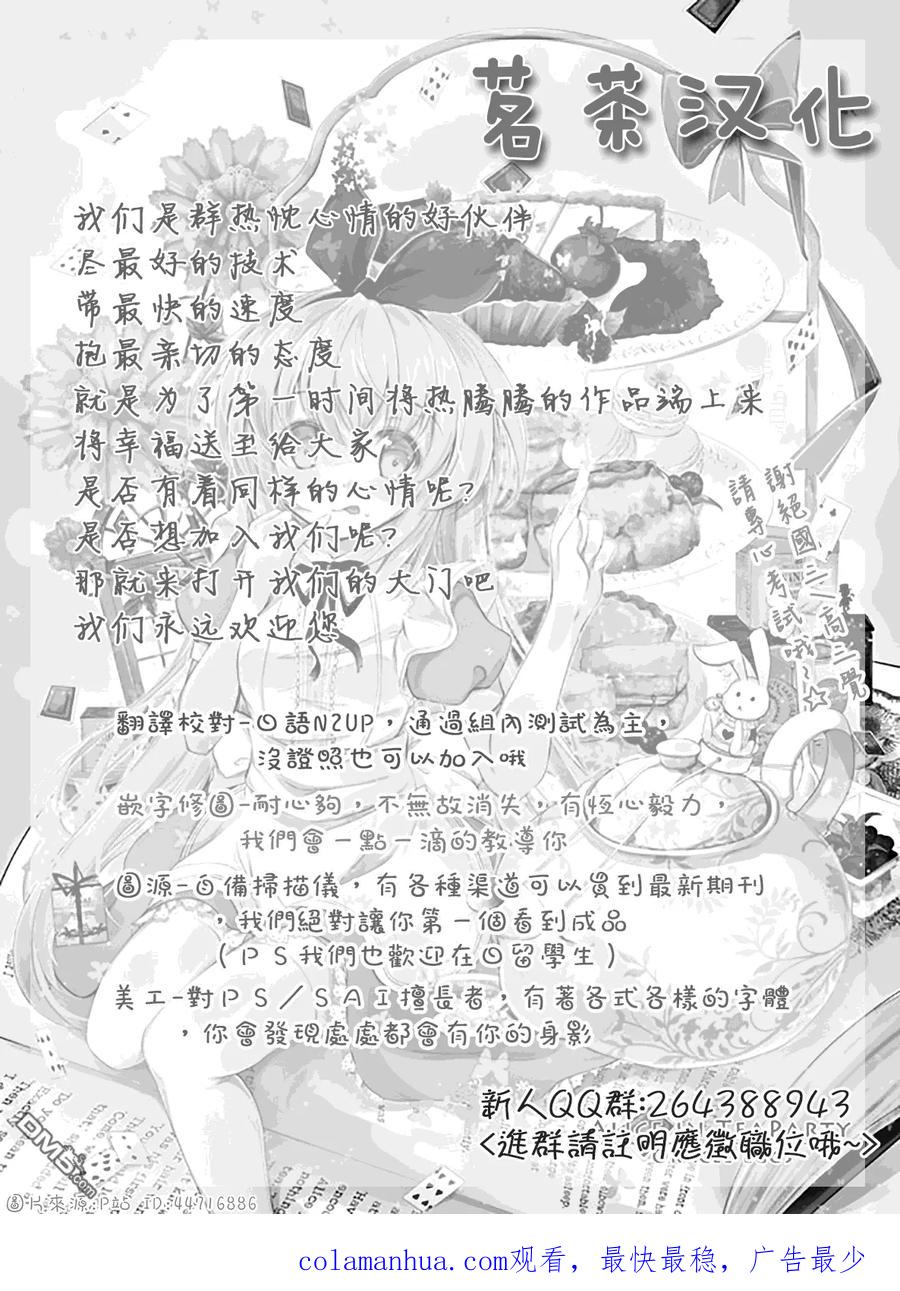 茗茶汉化
我们是群热忱心情的好伙伴
尽最好的技术
带最快的速度
抱最亲切的态度
就是为了第一时间将热腾腾的作品端上来
将幸福送至给大家
是否有着同样的心情呢?
是否想加入我们呢?
那就来打开我们的大门吧
我们永远欢迎您
謝絕國三、高三覺
請專心考試哦~☆
翻譯校對-日語N2UP，通過組內測試為主，
沒證照也可以加入哦
嵌字修圖-耐心夠，不無故消失，有恆心毅力，
我們會一點一滴的教導你
圖源-自備掃描儀，有各種渠道可以買到最新期刊
，我們絕對讓你第一個看到成品
（PS我們也歡迎在日留學生）
美工-對PS／SAI擅長者，有著各式各樣的字體
，你會發現處處都會有你的身影
新人QQ群:264388943
<進群請註明應徵職位哦~>
圖片來源:P站 ID:44716886
colamanhua.com观看，最快最稳，广告最少